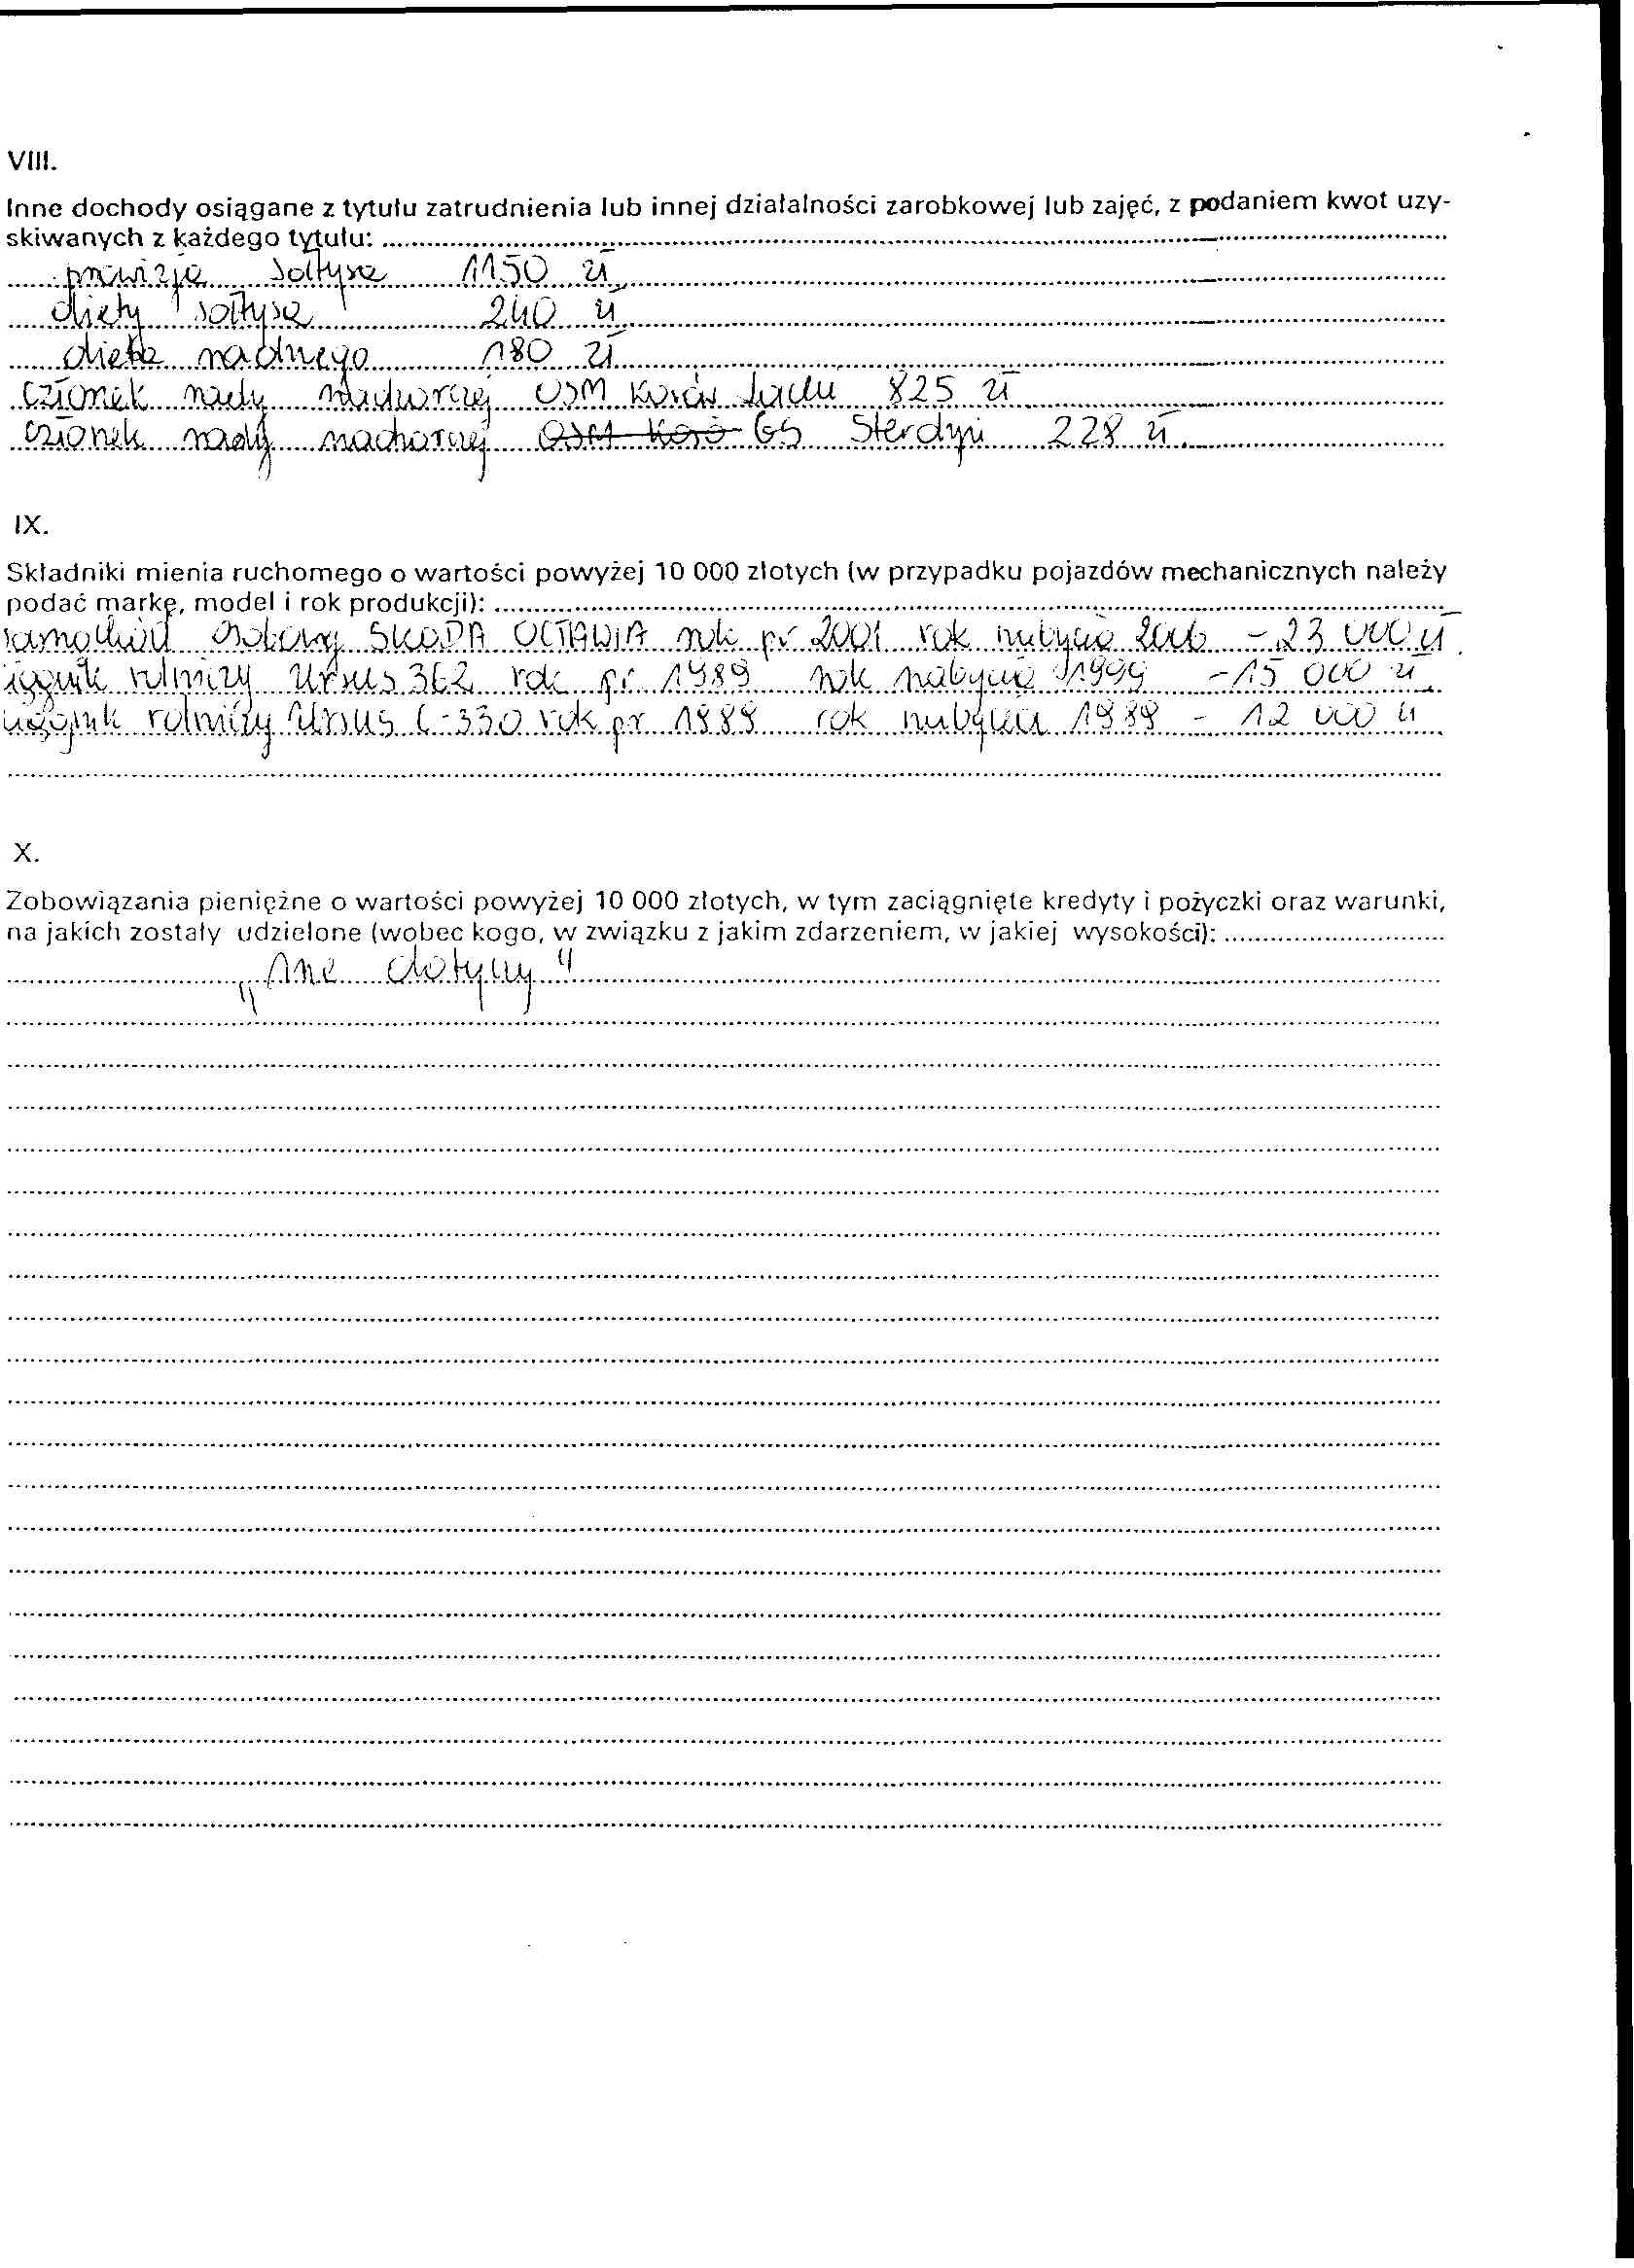 VIII.
Inne dochody osiągane z tytułu zatrudnienia lub innej działalności zarobkowej lub zajęć, z podaniem kwot uzy-
skiwanych z każdego tytułu:
prowizja sołtysa 1150 zł
diety sołtysa 240 zł
dieta radnego 180 zł
członek rady nadzorczej OSM Kosów Lacki 825 zł
członek rady nadzorczej OSM Koso GS Sterdyń 228 zł.
IX.
Składniki mienia ruchomego o wartości powyżej 10 000 złotych (w przypadku pojazdów mechanicznych należy
podać markę, model i rok produkcji):
samochód osobowy SKODA OCTAWIA rok pr 2001 rok nabycia 2006 - 23 000 zł.
ciągnik rolniczy Ursus 362 rok pr. 1989 rok nabycia 1999 - 15 000 zł.
ciągnik rolniczy Ursus C-330 rok pr. 1989 rok nabycia 1989 - 12 000 zł
X.
Zobowiązania pieniężne o wartości powyżej 10 000 złotych, w tym zaciągnięte kredyty i pożyczki oraz warunki,
na jakich zostały udzielone (wobec kogo, w związku z jakim zdarzeniem, w jakiej wysokości):
„nie dotyczy"